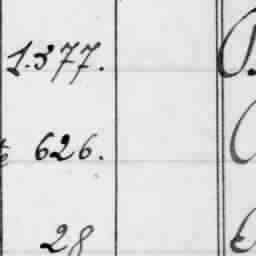 1.377.
626.
28